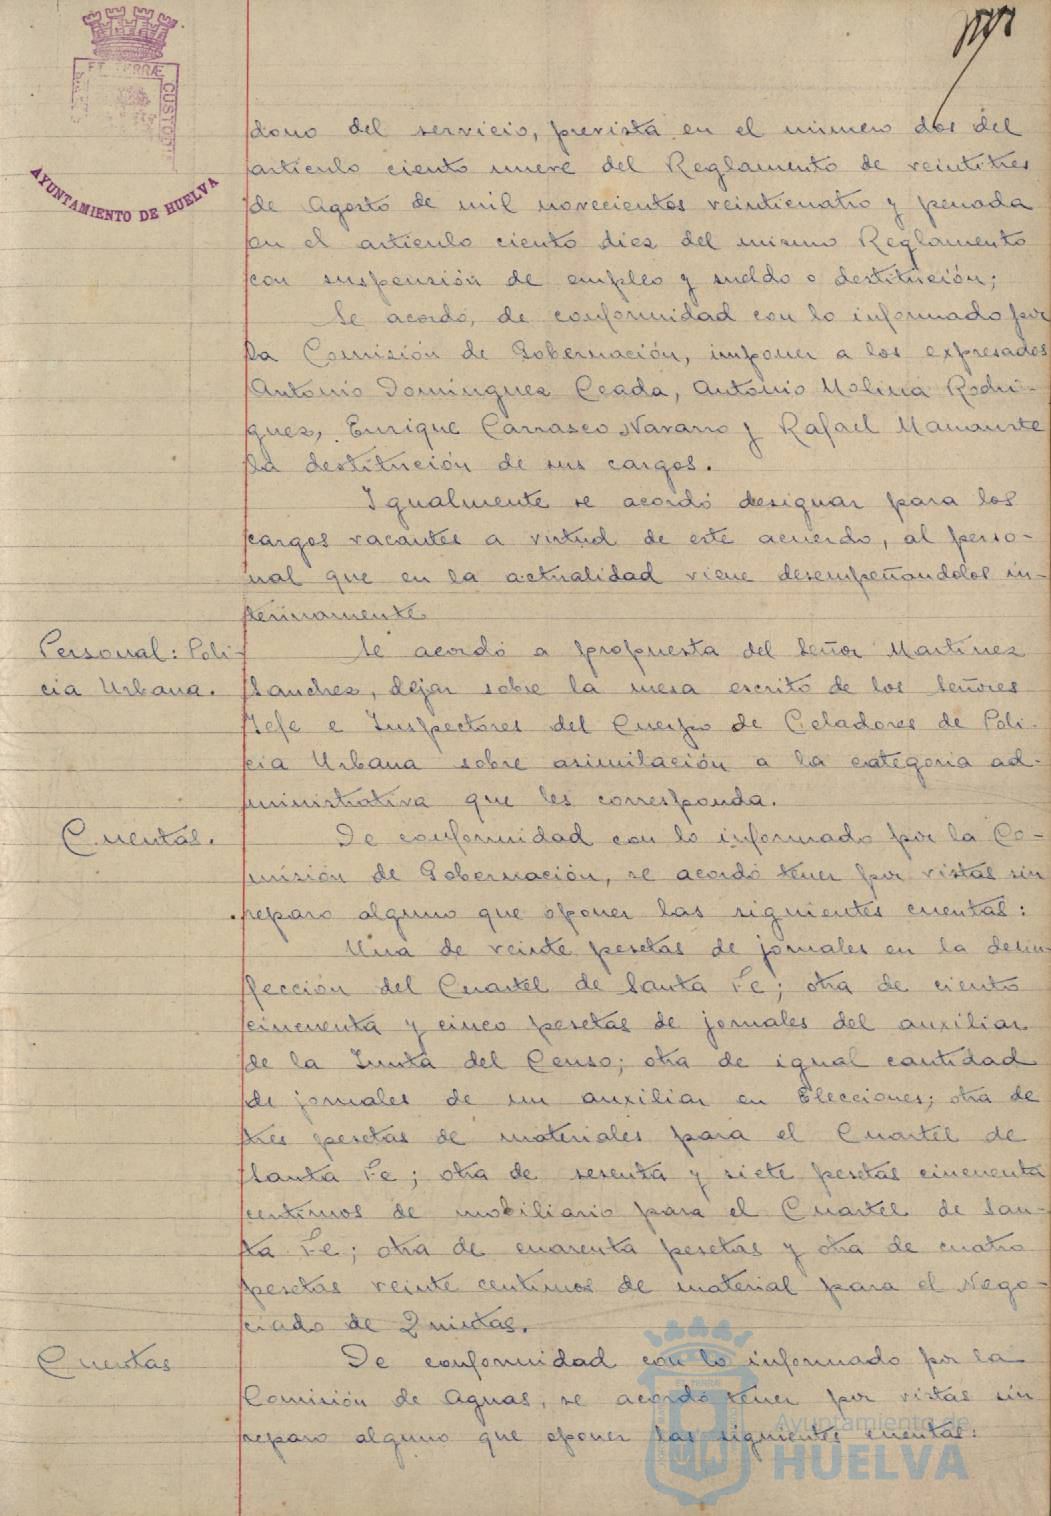 ET TERRÆ
CUSTODI
AYUNTAMIENTO DE HUELVA
dono del servicio, prevista en el número dos del
artículo ciento nueve del Reglamento de veintitres
de Agosto de mil novecientos veinticuatro y penada
en el artículo ciento diez del mismo Reglamento
con suspensión de empleo y sueldo o destitución;
Se acordó, de conformidad con lo informado por
la Comisión de Gobernación, imponer a los expresados
Antonio Domínguez Ceada, Antonio Molina Rodri-
guez, Enrique Carrasco Navarro y Rafael
la destitución de sus cargos.
Igualmente se acordó designar para los
cargos vacantes a virtud de este acuerdo, al perso-
nal que en la actualidad viene desempeñandolos in-
terinamente
Personal: Poli-
cia Urbana.
Se acordó a propuesta del Señor Martínez
Sanchez, dejar sobre la mesa escrito de los Señores
Jefe e Inspectores del Cuerpo de Celadores de Poli-
cia Urbana sobre asimilación a la categoria ad-
ministrativa que les corresponda.
Cuentas.
De conformidad con lo informado por la Co-
misión de Gobernación, se acordó tener por vistas sin
reparo alguno que oponer las siguientes cuentas:
Una de veinte pesetas de jornales en la desin-
fección del Cuartel de Santa Fe; otra de ciento
cincuenta y cinco pesetas de jornales del auxiliar
de la Junta del Censo; otra de igual cantidad
de jornales de un auxiliar en Elecciones; otra de
tres pesetas de materiales para el Cuartel de
Santa Fe; otra de sesenta y siete pesetas cincuenta
centimos de mobiliario para el Cuartel de San-
ta Fe; otra de cuarenta pesetas y otra de cuatro
pesetas veinte centimos de material para el Nego-
ciado de Quintas.
Cuentas
De conformidad con lo informado por la
Comisión de Aguas, se acordó tener por vistas sin
reparo alguno que oponer las siguientes cuentas:
Ayuntamiento de
HUELVA